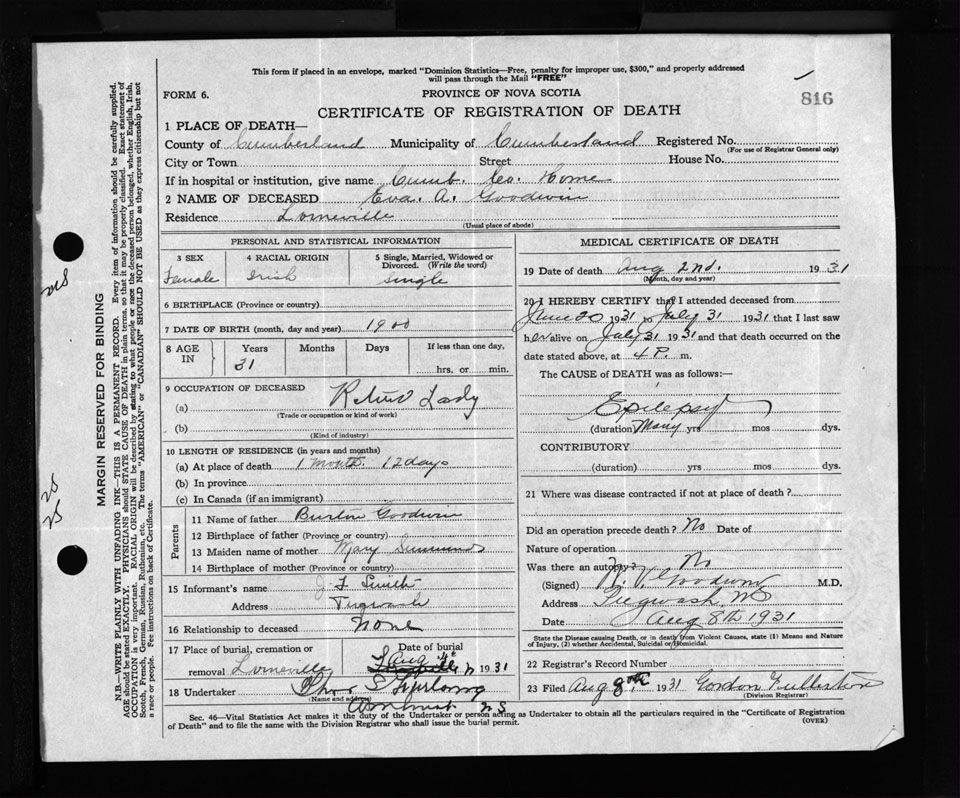 This form if placed in an envelope, marked "Dominion Statistics—Free, penalty for improper use, $300," and properly addressed
will pass through the Mail "FREE"
FORM 6.
PROVINCE OF NOVA SCOTIA
816
CERTIFICATE OF REGISTRATION OF DEATH
1 PLACE OF DEATH—
County of Cumberland Municipality of Cumberland Registered No.
(For use of Registrar General only)
City or Town Street House No.
If in hospital or institution, give name Cumb. Co. Home
2 NAME OF DECEASED Eva. A. Goodwin
Residence Lorneville
(Usual place of abode)
PERSONAL AND STATISTICAL INFORMATION
3 SEX 4 RACIAL ORIGIN 5 Single, Married, Widowed or
Divorced. (Write the word)
Female Irish Single
6 BIRTHPLACE (Province or country)
7 DATE OF BIRTH (month, day and year) 1900
8 AGE IN Years Months Days If less than one day,
31 hrs. or min.
9 OCCUPATION OF DECEASED
(a) Lady
(Trade or occupation or kind of work)
(b)
(Kind of industry)
10 LENGTH OF RESIDENCE (in years and months)
(a) At place of death 1 month. 12 days
(b) In province
(c) In Canada (if an immigrant)
Parents
11 Name of father Burton Goodwin
12 Birthplace of father (Province or country)
13 Maiden name of mother Mary
14 Birthplace of mother (Province or country)
15 Informant's name Smith
Address Pugwash
16 Relationship to deceased none
17 Place of burial, cremation or Date of burial
removal Lorneville Aug 1931
18 Undertaker
(Name and address)
Amherst N S
MEDICAL CERTIFICATE OF DEATH
19 Date of death Aug 2nd. 1931
(Month, day and year)
20 I HEREBY CERTIFY that I attended deceased from
June 20 1931 to July 31 1931 that I last saw
her alive on July 31 1931 and that death occurred on the
date stated above, at 4 P. m.
The CAUSE of DEATH was as follows:—
Epilepsy
(duration) Many yrs mos dys.
CONTRIBUTORY
(duration) yrs mos dys.
21 Where was disease contracted if not at place of death?
Did an operation precede death? No Date of
Nature of operation
Was there an autopsy? No
(Signed) Goodwin M.D.
Address Pugwash, NS
Date Aug 8th 1931
State the Disease causing Death, or in death from Violent Causes, state (1) Means and Nature
of Injury, (2) whether Accidental, Suicidal or Homicidal.
22 Registrar's Record Number
23 Filed Aug 8th, 1931 Gordon Fullerton
(Division Registrar)
Sec. 46—Vital Statistics Act makes it the duty of the Undertaker or person acting as Undertaker to obtain all the particulars required in the "Certificate of Registration
of Death" and to file the same with the Division Registrar who shall issue the burial permit.
(OVER)
MARGIN RESERVED FOR BINDING
N.B.—WRITE PLAINLY WITH UNFADING INK—THIS IS A PERMANENT RECORD. Every item of information should be carefully supplied.
AGE should be stated EXACTLY. PHYSICIANS should STATE CAUSE OF DEATH in plain terms, so that it may be properly classified. Exact statement of
OCCUPATION is very important. RACIAL ORIGIN will be described by stating to what people or race the deceased person belonged, whether English, Irish,
Scotch, French, German, Russian, Ruthenian, etc. The terms "AMERICAN" or "CANADIAN" SHOULD NOT BE USED as they express citizenship but not
race or people. Fee instructions on back of Certificate.